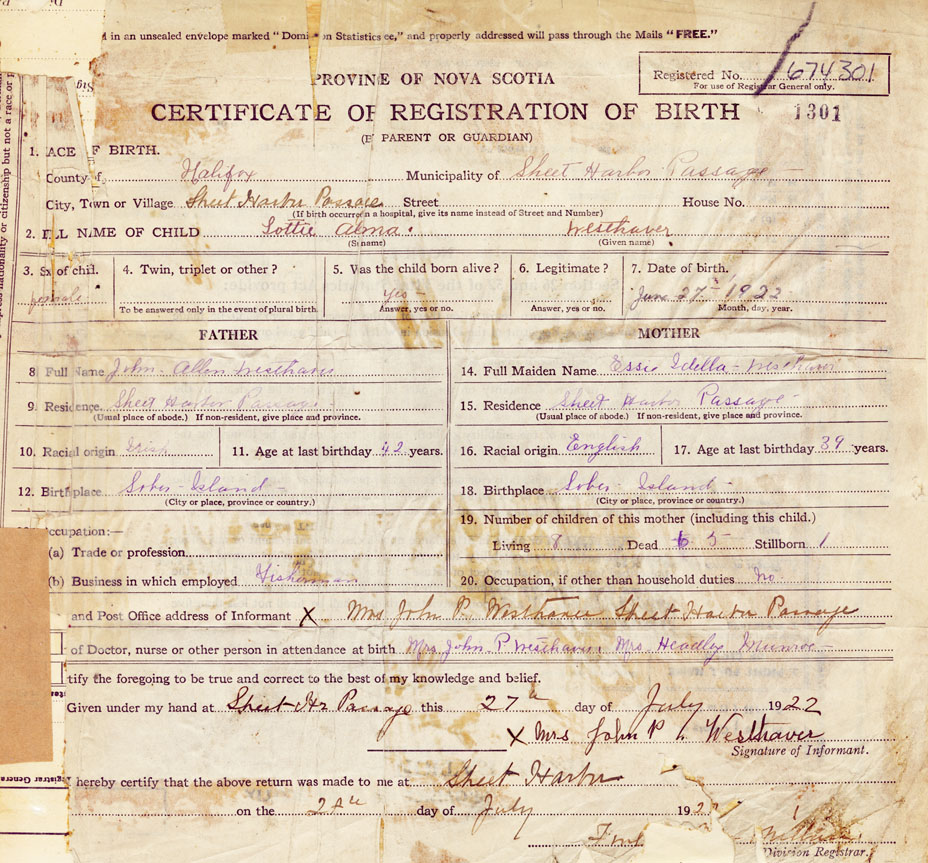 d in an unsealed envelope marked "Domi on Statistics ee," and properly addressed will pass through the Mails "FREE."
PROVINE OF NOVA SCOTIA
Registered No. 674301
For use of Registrar General only.
CERTIFICATE OF REGISTRATION OF BIRTH 1301
(B PARENT OR GUARDIAN)
1. ACE F BIRTH.
County f Halifox Municipality of Sheet Harbor Passage
City, Town or Village Sheet Harbor Passage Street House No.
(If birth occurred in a hospital, give its name instead of Street and Number)
2. F LL NAME OF CHILD Lottie Alma. Westhaver
(S name) (Given name)
3. Sx of chil. 4. Twin, triplet or other? 5. Was the child born alive? 6. Legitimate? 7. Date of birth.
female yes June 27th 1922
To be answered only in the event of plural birth. Answer, yes or no. Answer, yes or no. Month, day, year.
FATHER MOTHER
8 Full Name John Allen Westhaver 14. Full Maiden Name Essie Idella Westhaver
9. Residence. Sheet Harbor Passage 15. Residence Sheet Harbor Passage
(Usual place of abode.) If non-resident, give place and province. (Usual place of abode.) If non-resident, give place and province.
10. Racial origin Irish 11. Age at last birthday 42 years. 16. Racial origin English 17. Age at last birthday 39 years.
12. Birthplace Sober Island 18. Birthplace Sober Island
(City or place, province or country.) (City or place, province or country.)
19. Number of children of this mother (including this child.)
ccupation:—
Living 8 Dead 5 Stillborn 1
(a) Trade or profession
(b) Business in which employed Fisherman 20. Occupation, if other than household duties No.
and Post Office address of Informant X Mrs John P. Westhaver Sheet Harbor Passage
of Doctor, nurse or other person in attendance at birth Mrs John P Westhaver. Mrs Headley Munroe
tify the foregoing to be true and correct to the best of my knowledge and belief.
Given under my hand at Sheet Hr Passage this 27th day of July 1922
X Mrs John P Westhaver
Signature of Informant.
hereby certify that the above return was made to me at Sheet Harbor
on the day of July 192
Division Registrar.